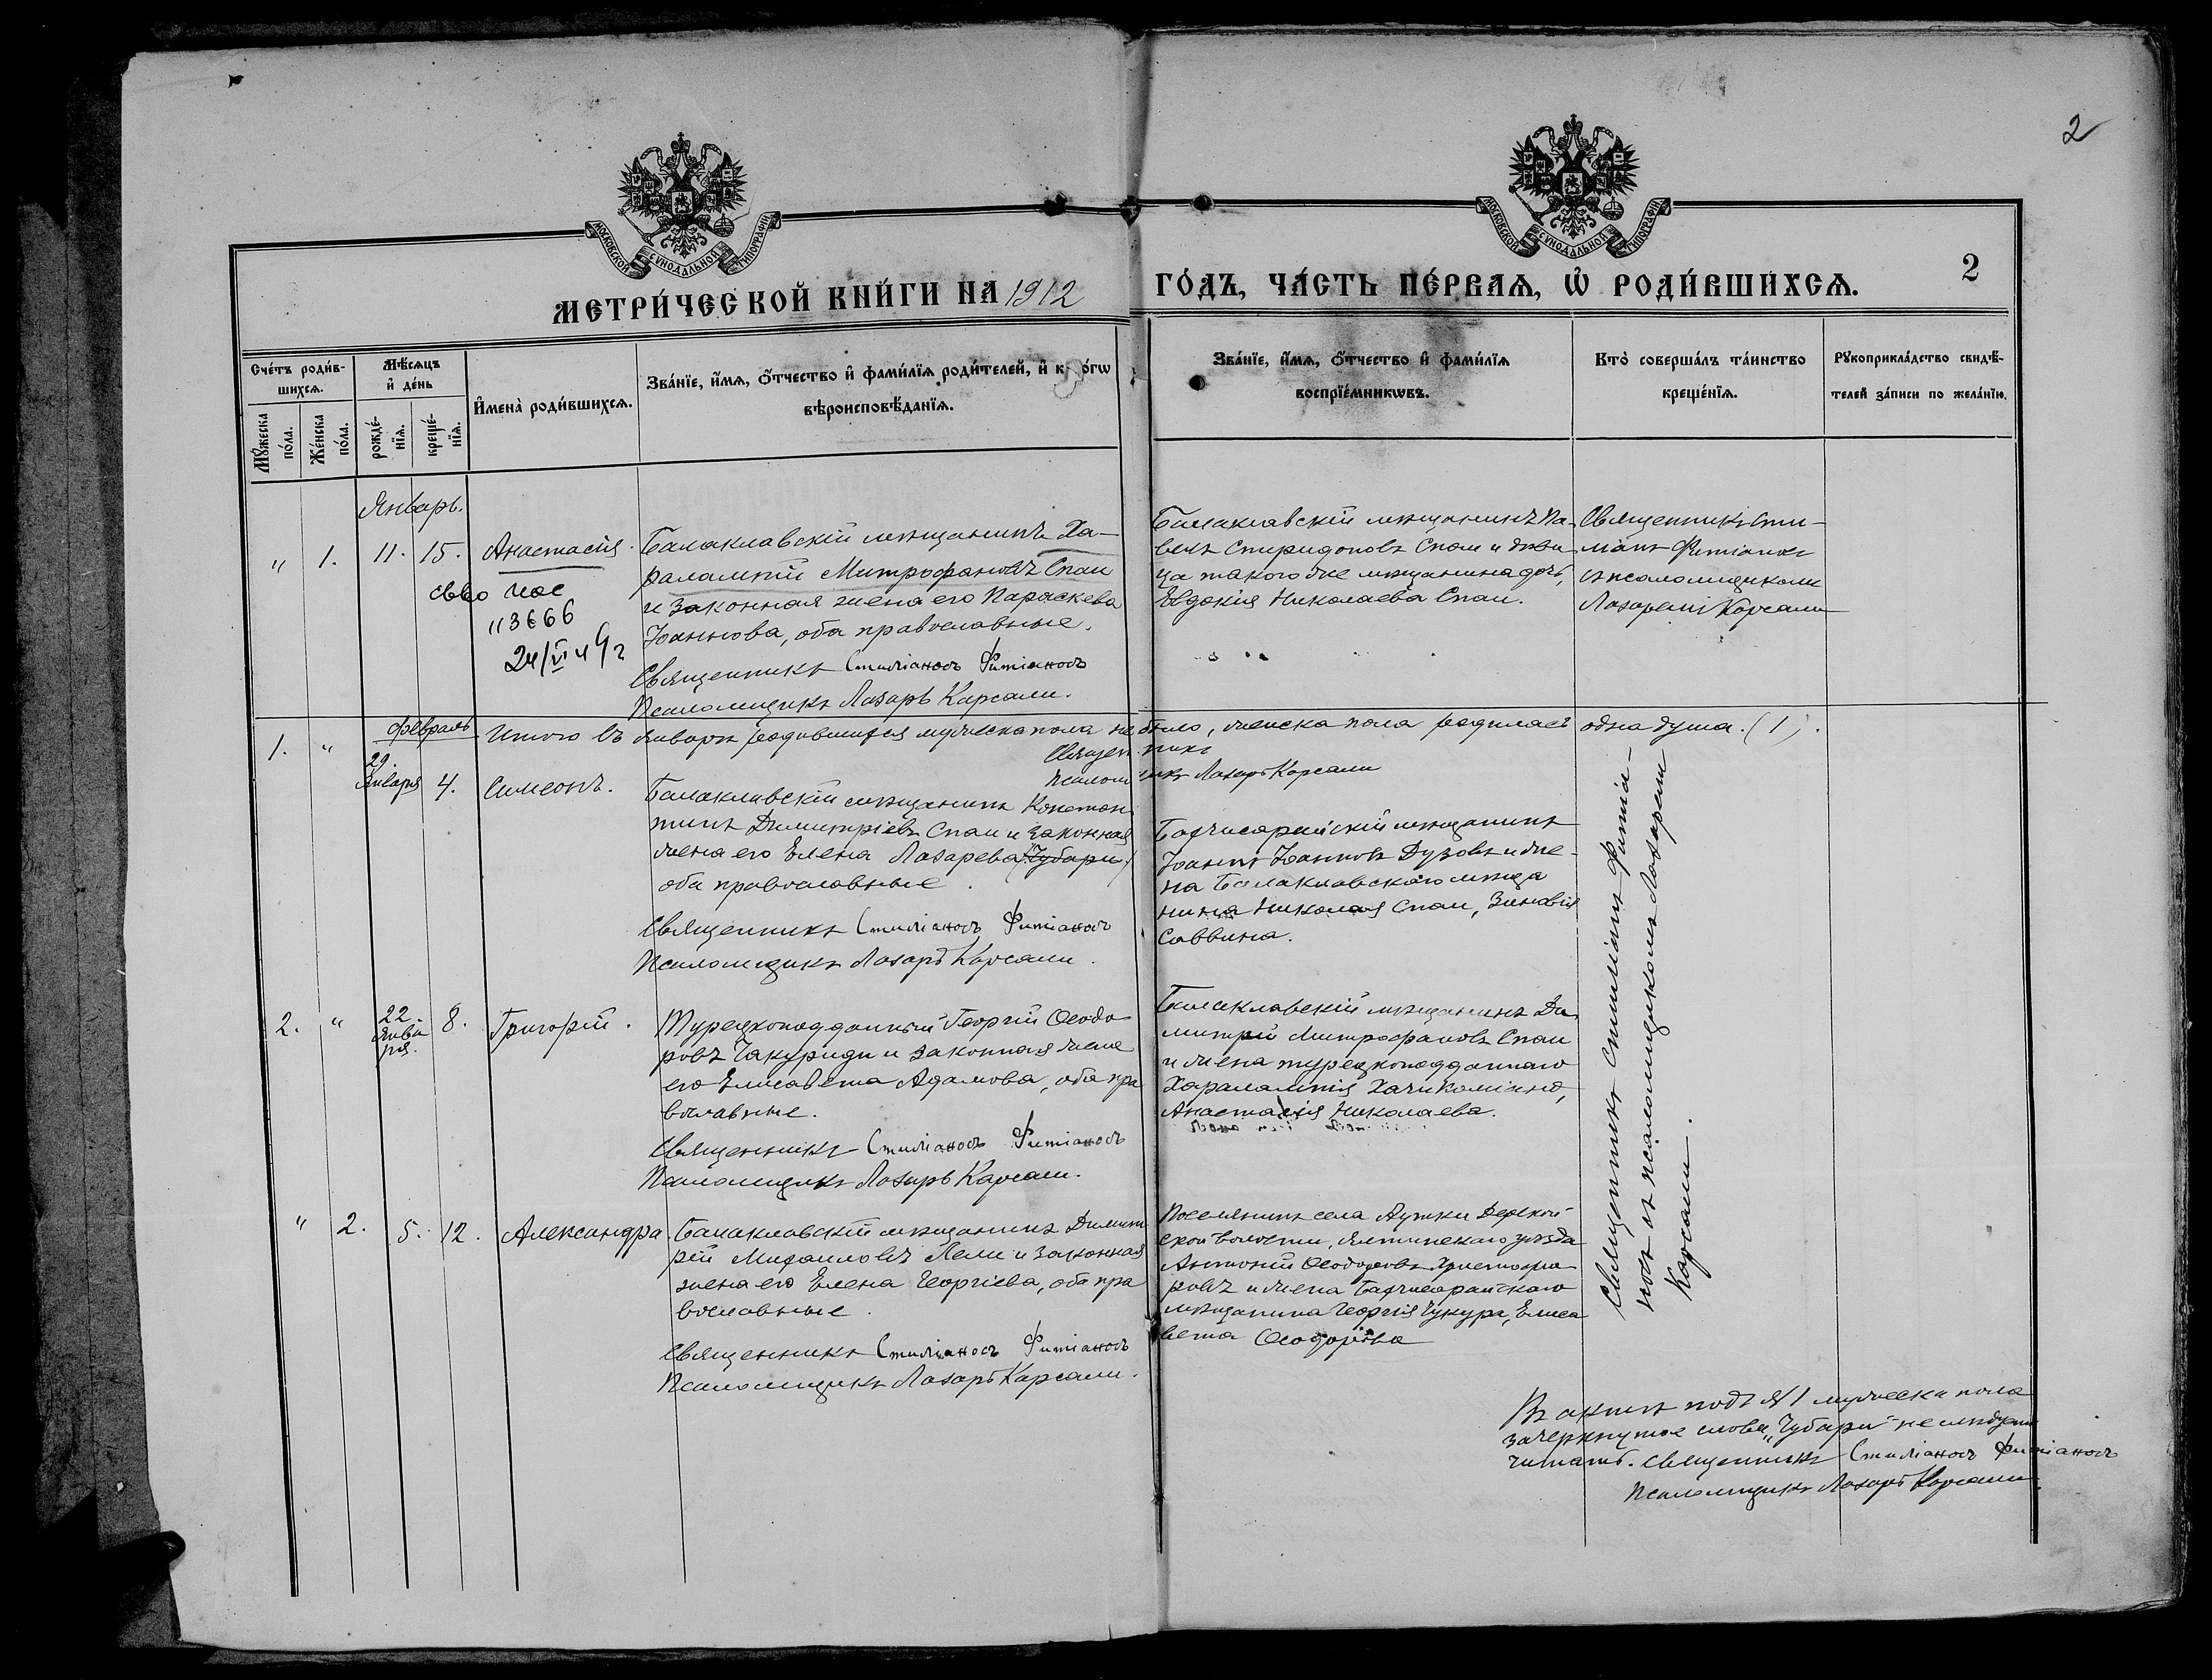 2
МОСКОВСКОЙ СУНОДАЛЬНОЙ ТИПОГРАФІИ
МОСКОВСКОЙ СУНОДАЛЬНОЙ ТИПОГРАФІИ
МЕТРИ́ЧЕСКОЙ КНИ́ГИ НА 1912
ГО́ДЪ, ЧА́СТЬ ПЕ́РВАѦ, Ѡ҆ РОДИ́ВШИХСѦ.
2
Сче́тъ роди́в-
шихсѧ.
Мꙋ́жеска
по́ла.
Же́нска
по́ла.
Мѣ́сѧцъ
и҆ де́нь
рожде́-
нїѧ.
креще́-
нїѧ.
И҆мена̀ роди́вшихсѧ.
Зва́нїе, и҆́мѧ, ѻ҆́тчество и҆ фами́лїѧ роди́телей, и҆ к о́гѡ
вѣроисповѣ́данїѧ.
Зва́нїе, и҆́мѧ, ѻ҆́тчество и҆ фами́лїѧ
воспрїе́мникѡвъ.
Кто̀ соверша́лъ та́инство
креще́нїѧ.
Рꙋкоприкла́дство свидѣ́-
телей за́писи по жела́нїю.
Январь.
" 1. 11. 15. Анастасія.
свво
113666
24/VI 49г
Балаклавскій мѣщанинъ Ха-
ралампій Митрофановъ Спаи
и законная жена его Параскева
Іоаннова, оба православные.
Священникъ Стиліаносъ Фитіаносъ
Псаломщикъ Лазарь Карсали.
Балаклавскій мѣщанинъ Па-
велъ Спиридоновъ Спаи и дѣви
ца такого же мѣщанина дочь,
Евдокія Николаева Спаи.
Священникъ Сти-
ліанъ Фитіаносъ
съ псаломщикомъ
Лазаремъ Карсали
Февраль
Итого въ январѣ родившихся мужеска пола не было, женска пола родилась одна душа. (1).
Священникъ
Псаломщикъ Лазарь Карсали
1. " 29. Января 4. Симеонъ.
Балаклавскій мѣщанинъ Констан-
тинъ Димитріевъ Спаи и законная
жена его Елена Лазарева (Чубари)
оба православные.
Священникъ Стиліаносъ Фитіаносъ
Псаломщикъ Лазарь Карсали.
Бахчисарайскій мѣщанинъ
Іоаннъ Іоанновъ Дузовъ и же-
на Балаклавскаго мѣща
нина Николая Спаи, Зиновія
Саввина.
Священникъ Стиліанъ Фитіа-
носъ съ псаломщикомъ Лазаремъ
Карсали.
2. " 22 Янва
ря. 8. Григорій.
Турецкоподданный Георгій Ѳеодо
ровъ Чакуриди и законная жена
его Елисавета Адамова, оба пра
вославные.
Священникъ Стиліаносъ Фитіаносъ
Псаломщикъ Лазарь Карсали.
Балаклавскій мѣщанинъ Ди
митрій Митрофановъ Спаи
и жена турецкоподданнаго
Харалампія
Анастасія Николаева.
" 2. 5. 12. Александра.
Балаклавскій мѣщанинъ Димит
рій Михаиловъ Лели и законная
жена его Елена Георгіева, оба пра
вославные.
Священникъ Стиліаносъ Фитіаносъ
Псаломщикъ Лазарь Карсали.
Поселянинъ села Аутки Дерекой
ской волости, Ялтинскаго уѣзда
Антоній Ѳеодоровъ Христофо
ровъ и жена Бахчисарайскаго
мѣщанина Георгія Чукура, Елиса
вета Ѳеодорова
Въ актѣ подъ № 1 мужеска пола
зачеркнутое слово „Чубари" не слѣдуетъ
читать. Священникъ Стиліаносъ Фитіаносъ
Псаломщикъ Лазарь Карсали.